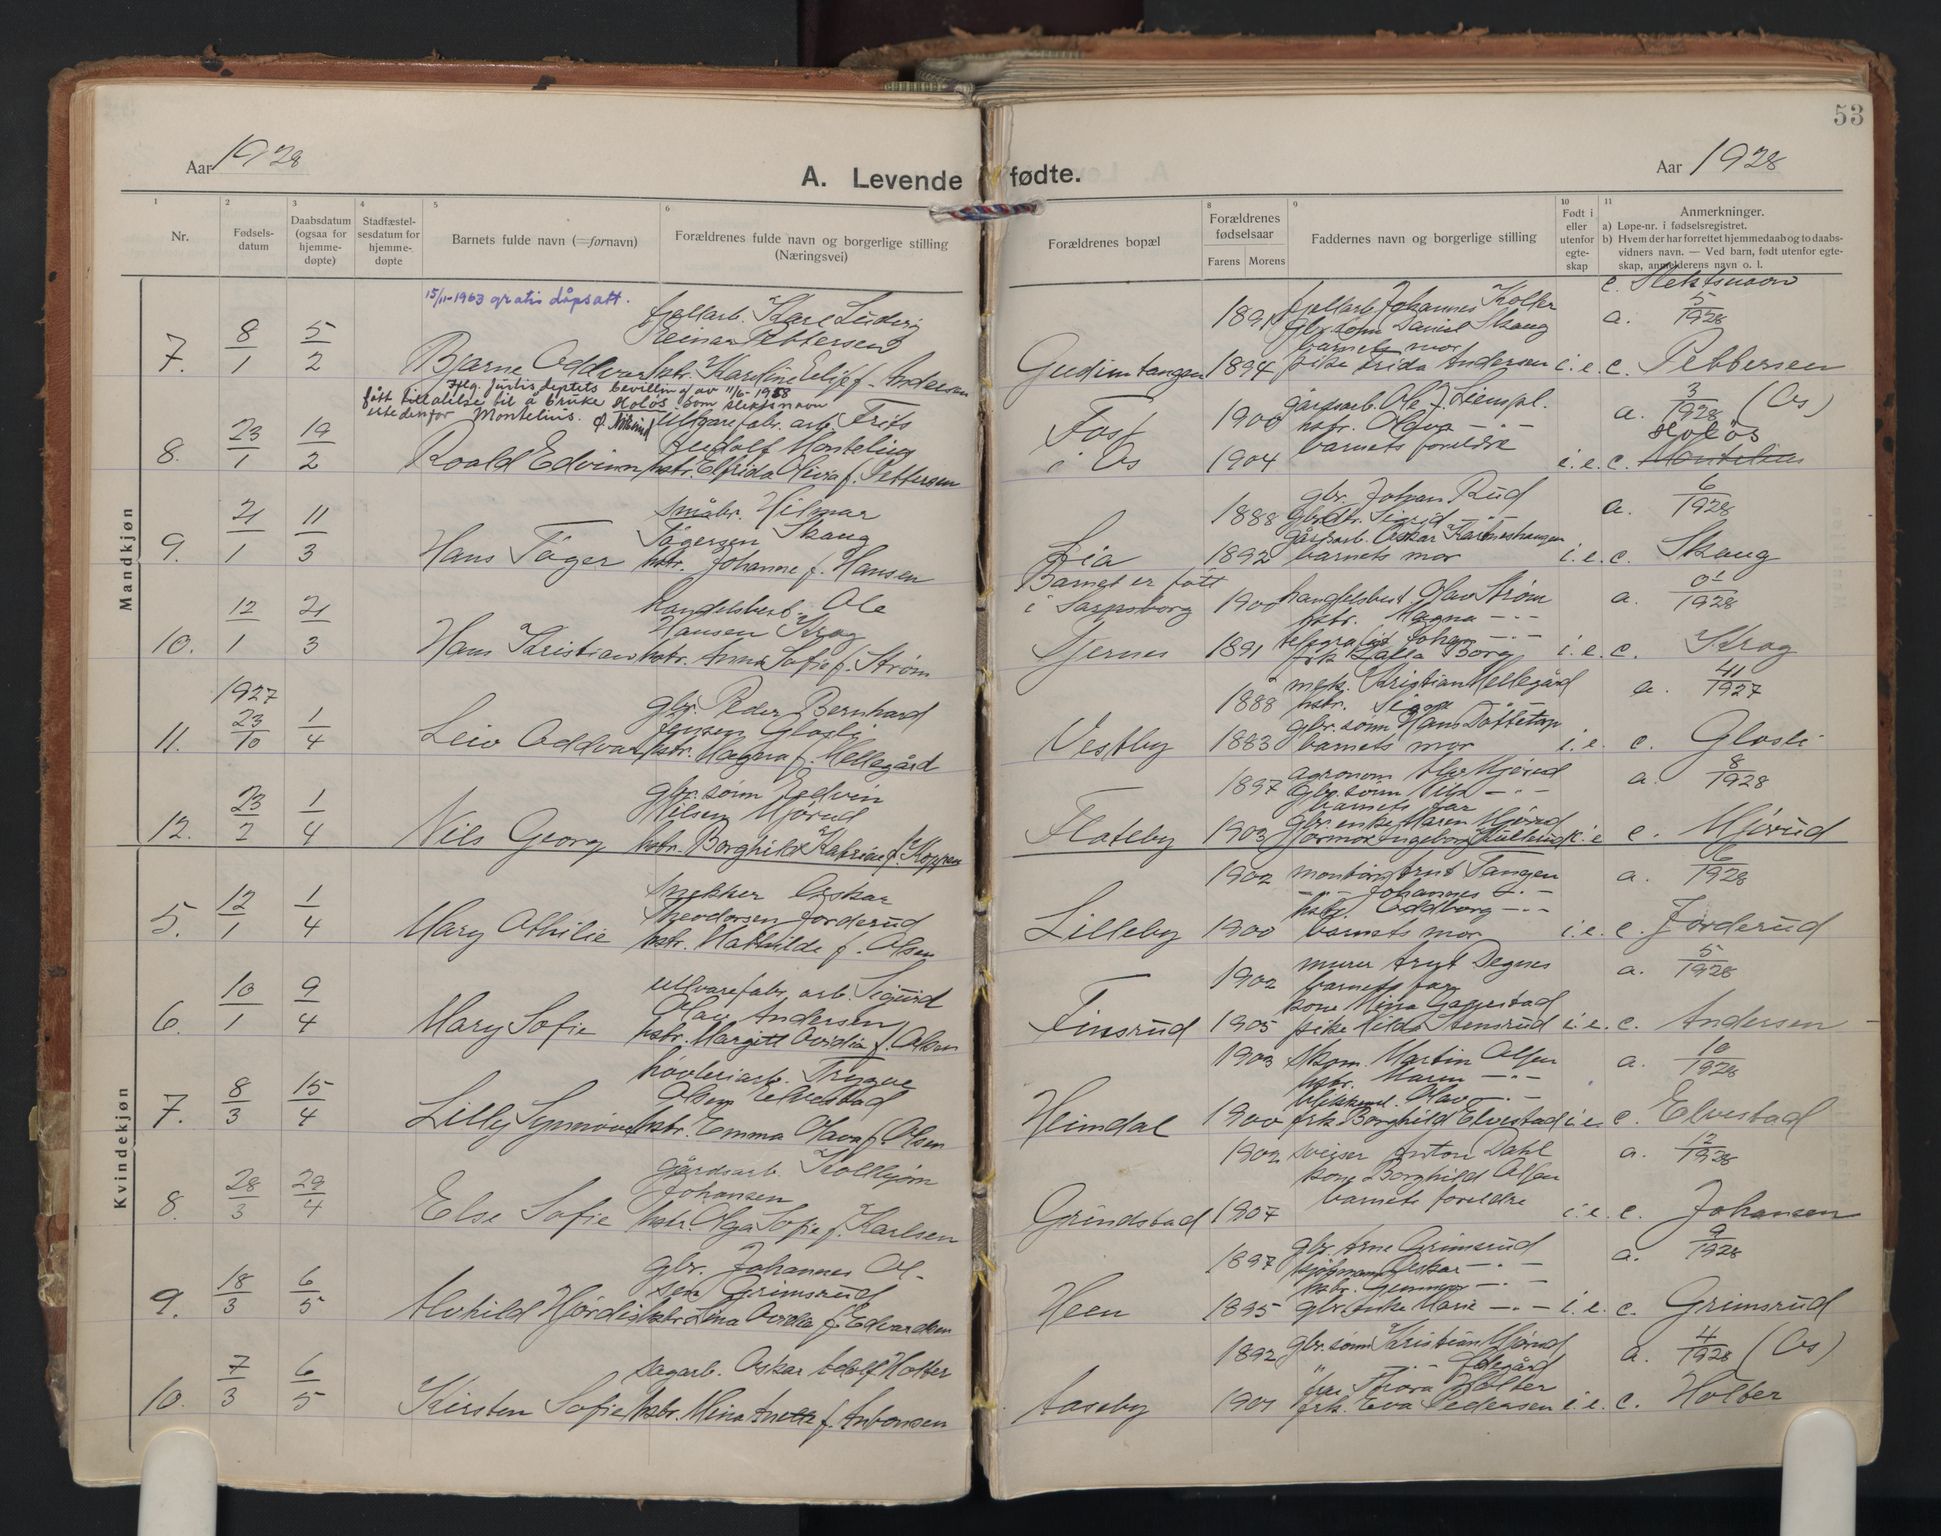 53
Aar 1928
A. Levende fødte.
Aar 1928
1 2 3 4 5 6 8 9 10 11
Nr.
Fødsels-
datum
Daabsdatum
(ogsaa for
hjemme-
døpte)
Stadfæstel-
sesdatum for
hjemme-
døpte
Barnets fulde navn (=fornavn)
Forældrenes fulde navn og borgerlige stilling
(Næringsvei)
Forældrenes bopæl
Forældrenes
fødselsaar
Farens Morens
Faddernes navn og borgerlige stilling
Født i
eller
utenfor
egte-
skap
Anmerkninger.
a) Løpe-nr. i fødselsregistret.
b) Hvem der har forrettet hjemmedaab og to daabs-
vidners navn. — Ved barn, født utenfor egte-
skap, anmelderens navn o. l.
Mandkjøn
c. Slektsnavn
15/11-1963 gratis dåpsatt.
7. 8/1 5/2 Bjarne Oddvar
fjellarb. Karl Ludvig
Reinar Pettersen
hstr. Karoline Eelije f. Andersen
Gudimtangen 1891 1894
fjellarb. Johannes Holter
gbr. sønn Daniel Skaug
barnets mor
pike Frida Andersen
i.e. a. 5/1928
c. Pettersen
Iflg. Justisdeptets bevilling av 11/6-1958
fått tillatelse til å bruke Holøs som slektsnavn
istedenfor Montelius.
8. 23/1 19/2 Roald Edvinn
ullvarefabr. arb. Frits
Rudolf Montelius
hstr. Elfrida Olivia f. Pettersen
Foss
i Os 1900 1904
gårdsarb. Ole J. Liempl.
hstr. Olava -"-
barnets foreldre
i.e. a. 3/1928 (Os)
Holøs
c. Montelius
9. 21/1 11/3 Hans Jäger
småbr. Hilmar
Jägersen Skaug
hstr. Johanne f. Hansen
Lia 1888 1892
gbr. Johan Rud
gbrdtr. Sigrid -"-
gårdsarb. Oskar
barnets mor
i.e. a. 6/1928
c. Skaug
10. 12/1 21/3 Hans Kristian
handelsbest. Ole
Hansen Krog
hstr. Anna Sofie f. Strøm
Barnet er født
i Sarpsborg
Tjernes 1900 1891
handelsbest Olav Strøm
hstr. Magna -"-
telegrafist Johan -"-
frk Borg
i.e. a. 01/1928
c. Krog
1927
11. 23/10 1/4 Leiv Oddvar
gbr. Peder Bernhard
Jensen Glosli
hstr. Magna f. Mellegård
Vestby 1888 1883
mek. Kristian Mellegård
hstr. Signe -"-
gbr. sønn Hans Døttetop
barnets mor
i.e. a. 41/1927
c. Glosli
12. 23/2 1/4 Nils Georg
gbr. sønn Edvin
Nilsen Mjørud
hstr. Borghild Katrine f. Koppen
Flateby 1897 1903
agronom Alv Mjørud
gbr. sønn Nils -"-
barnets far
gbr. enke Maren Mjørud
jormor Ingeborg Hullerud
i.e. a. 8/1928
c. Mjørud
Kvindekjøn
5. 12/1 1/4 Mary Othilie
snekker Oskar
Theodorsen Jorderud
hstr. Mathilde f. Olsen
Lilleby 1902 1900
montør Arnt Tangen
-"- Johannes -"-
hstr. Oddborg -"-
barnets mor
i.e. a. 6/1928
c. Jorderud
6. 10/1 9/4 Mary Sofie
ullvarefabr. arb. Sigurd
Olav Andersen
hstr. Margitt Ovidia f. Olsen
Finsrud 1902 1905
murer Aryt Degnes
barnets far
kone Mina Gagestad
pike Hilda Stensrud
i.e. a. 5/1928
c. Andersen
7. 8/3 15/4 Lilly Synnøve
høvleriarb. Trygve
Olsen Elvestad
hstr. Emma Olava f. Olsen
Heimdal 1903 1900
skom. Martin Olsen
hstr. Maren -"-
blikkensl. Olav -"-
frk Borghild Elvestad
i.e. a. 10/1928
c. Elvestad
8. 28/3 29/4 Else Sofie
gårdsarb. Kolbjørn
Johansen
hstr. Olga Sofie f. Karlsen
Grindstad 1902 1907
sveiser Anton Dahl
kone Borghild Olsen
barnets foreldre
i.e. a. 12/1928
c. Johansen
9. 18/3 6/5 Alvhild Hjørdis
gbr. Johannes Ol-
sen Grimsrud
hstr. Lina Ovidia f. Edvardsen
Heen 1897 1895
gbr. Arne Grimsrud
sjømann Oskar -"-
hstr. Gunnvor -"-
gbr. enke Marie -"-
i.e. a. 9/1928
c. Grimsrud
10. 7/3 6/5 Kirsten Sofie
sagarb. Oskar Adolf Holter
hstr. Mina Anette f. Antonsen
Aaseby 1892 1901
gbr. sønn Kristian Mjørud
" -"- Folegård
fru Thora Holter
frk. Eva Pedersen
i.e. a. 4/1928 (Os)
c. Holter